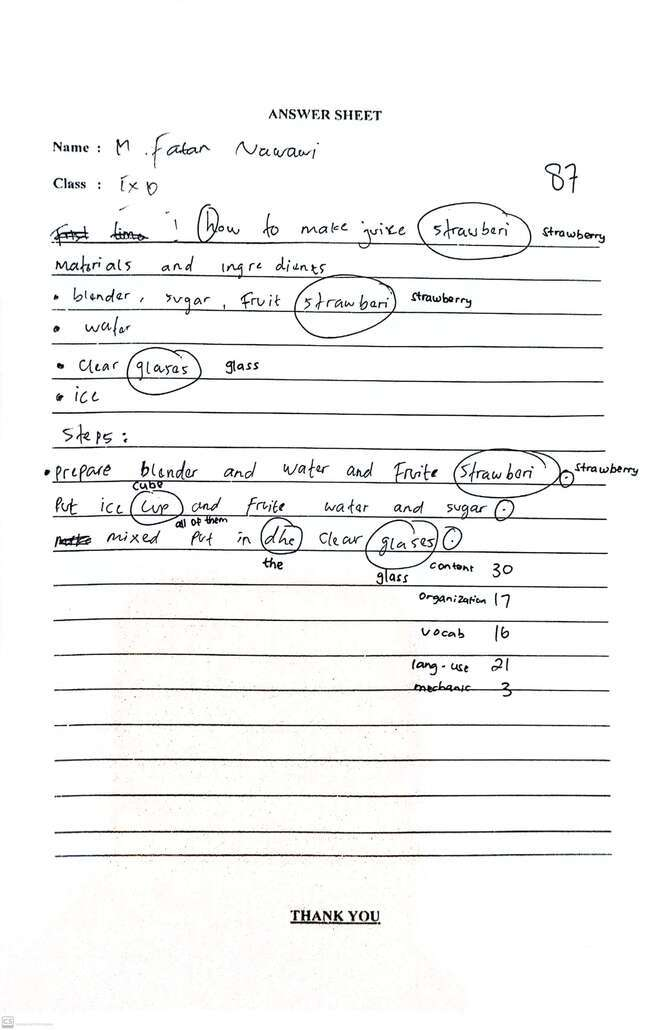 ANSWER SHEET
Name : M. Fatan Nawawi
Class : IX D
87
how to make juice strawberi strawberry
materials and ingredients
• blender, sugar, fruit strawberi strawberry
• water
• clear glases glass
• ice
Steps :
• prepare blender and water and fruite strawberi. strawberry
cube
Put ice cup and fruite water and sugar.
all of them
mixed put in dhe clear glases.
the glass
content 30
organization 17
vocab 16
lang-use 21
mechanic 3
THANK YOU
CS